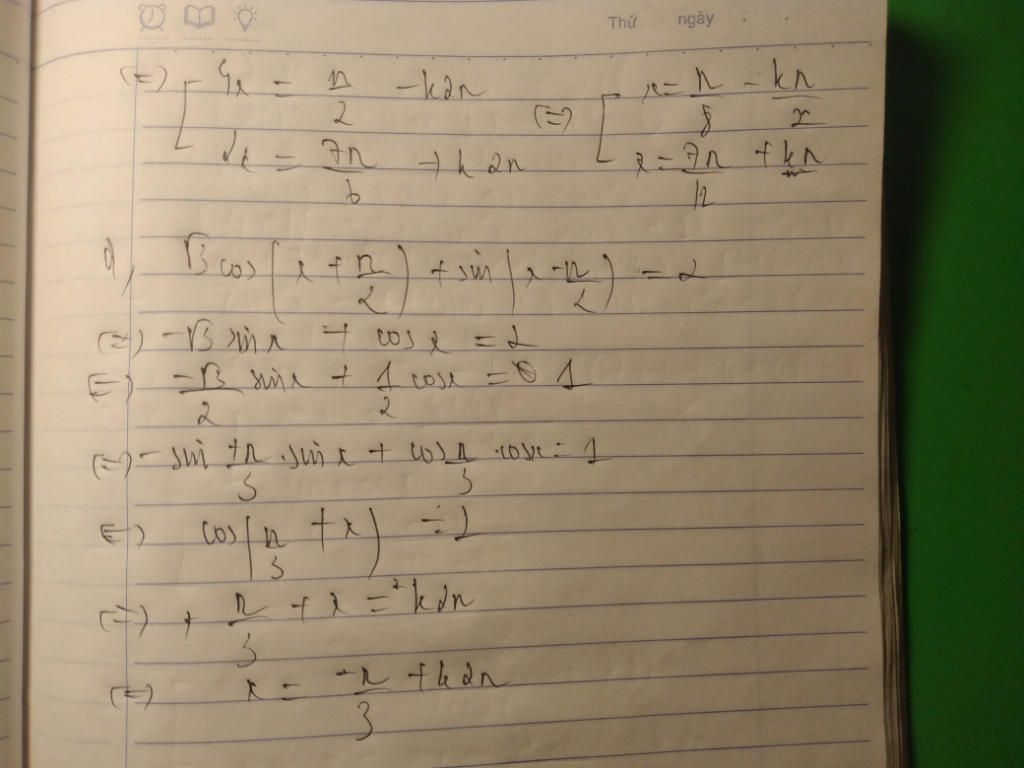 Thứ ngày
(=) [ 4x = π/2 - k2π (=) [ x = π/8 - kπ/2
2x = 7π/6 + k2π x = 7π/12 + kπ
d, √3 cos(x + π/2) + sin(x - π/2) = 2
(=) -√3 sinx + cosx = 2
(=) -√3/2 sinx + 1/2 cosx = 1
(=) - sin π/3 . sinx + cos π/3 . cosx = 1
(=) cos(π/3 + x) = 1
(=) π/3 + x = k2π
(=) x = -π/3 + k2π